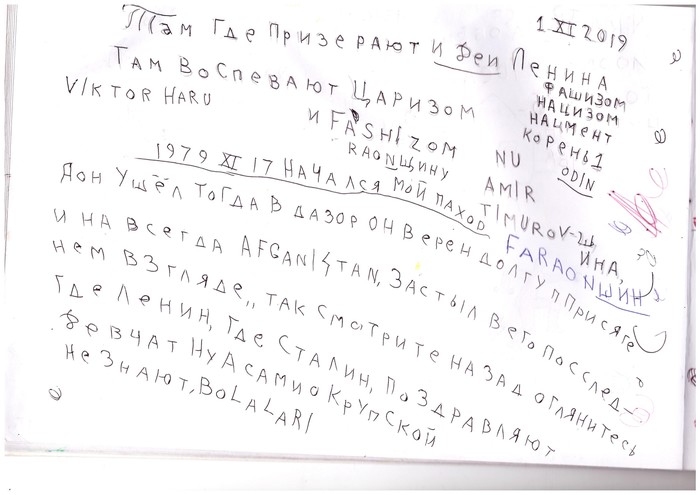 1 XI 2019
Там Где Призерают и Деи Ленина
Там Воспевают Царизом
фашизом
нацизом
нацмент
корень1
ODIN
VIKTOR HARU
и FASHIZOM
RAONщину
NU
AMIR
TIMUROV-Щ
ИНА,
FARAONШИН
1979 XI 17 Начался мой паход
Аон ушёл тогда в дазор он верен долгу пПрисяге
и на всегда AFGANISTAN, застыл в его поссслед-
нем взгляде,, так смотрите назад оглянитесь
Где Ленин, где Сталин, поздравляют
девчат Ну А сами о Крупской
не знают, BOLALARI